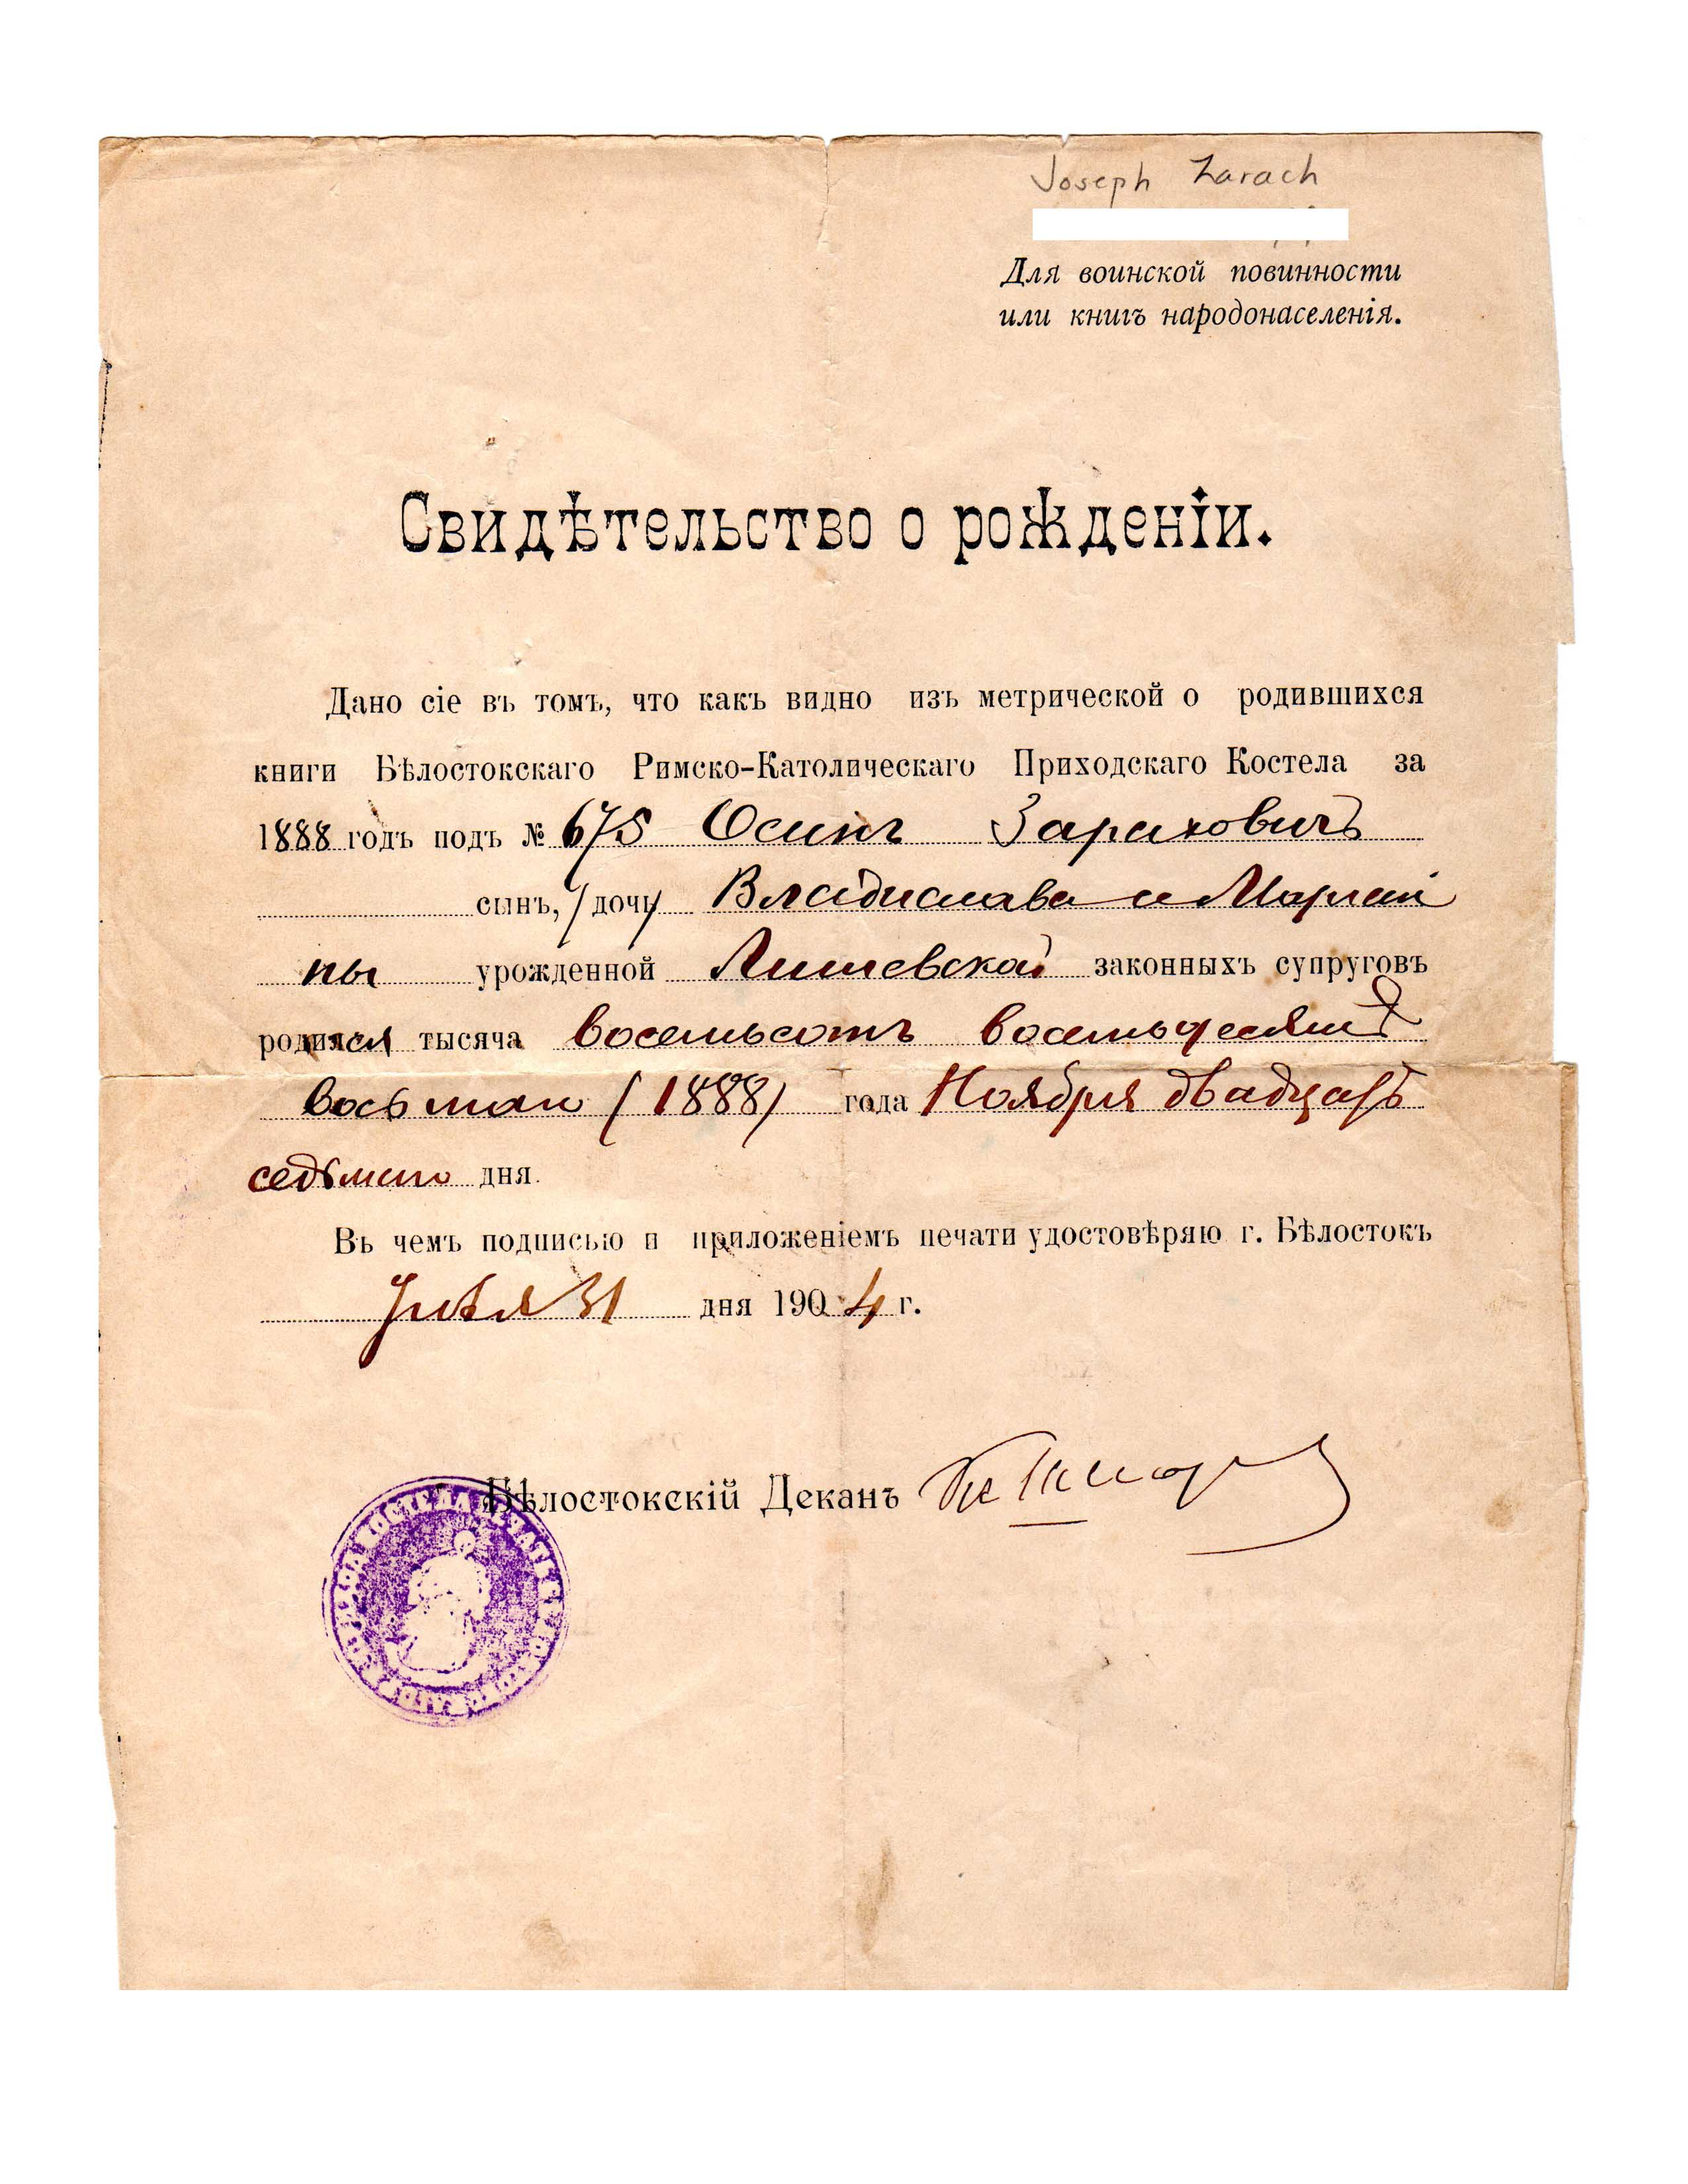 Joseph Zarach
Для воинской повинности
или книгъ народонаселенія.
Свидѣтельство о рожденіи.
Дано сіе въ томъ, что какъ видно изъ метрической о родившихся
книги Бѣлостокскаго Римско-Католическаго Приходскаго Костела за
1888 годъ подъ № 675 Осипъ Зараховичъ
сынъ, дочь Владислава и Марыан
ны урожденной Лишевской законныхъ супруговъ
родился тысяча восемьсотъ восемьдесятъ
восьмаго (1888) года Ноября двадцать
седьмаго дня.
Въ чемъ подписью и приложеніемъ печати удостовѣряю г. Бѣлостокъ
31 дня 1904 г.
Бѣлостокскій Деканъ
КОСТЕЛА ПЕЧАТЬ